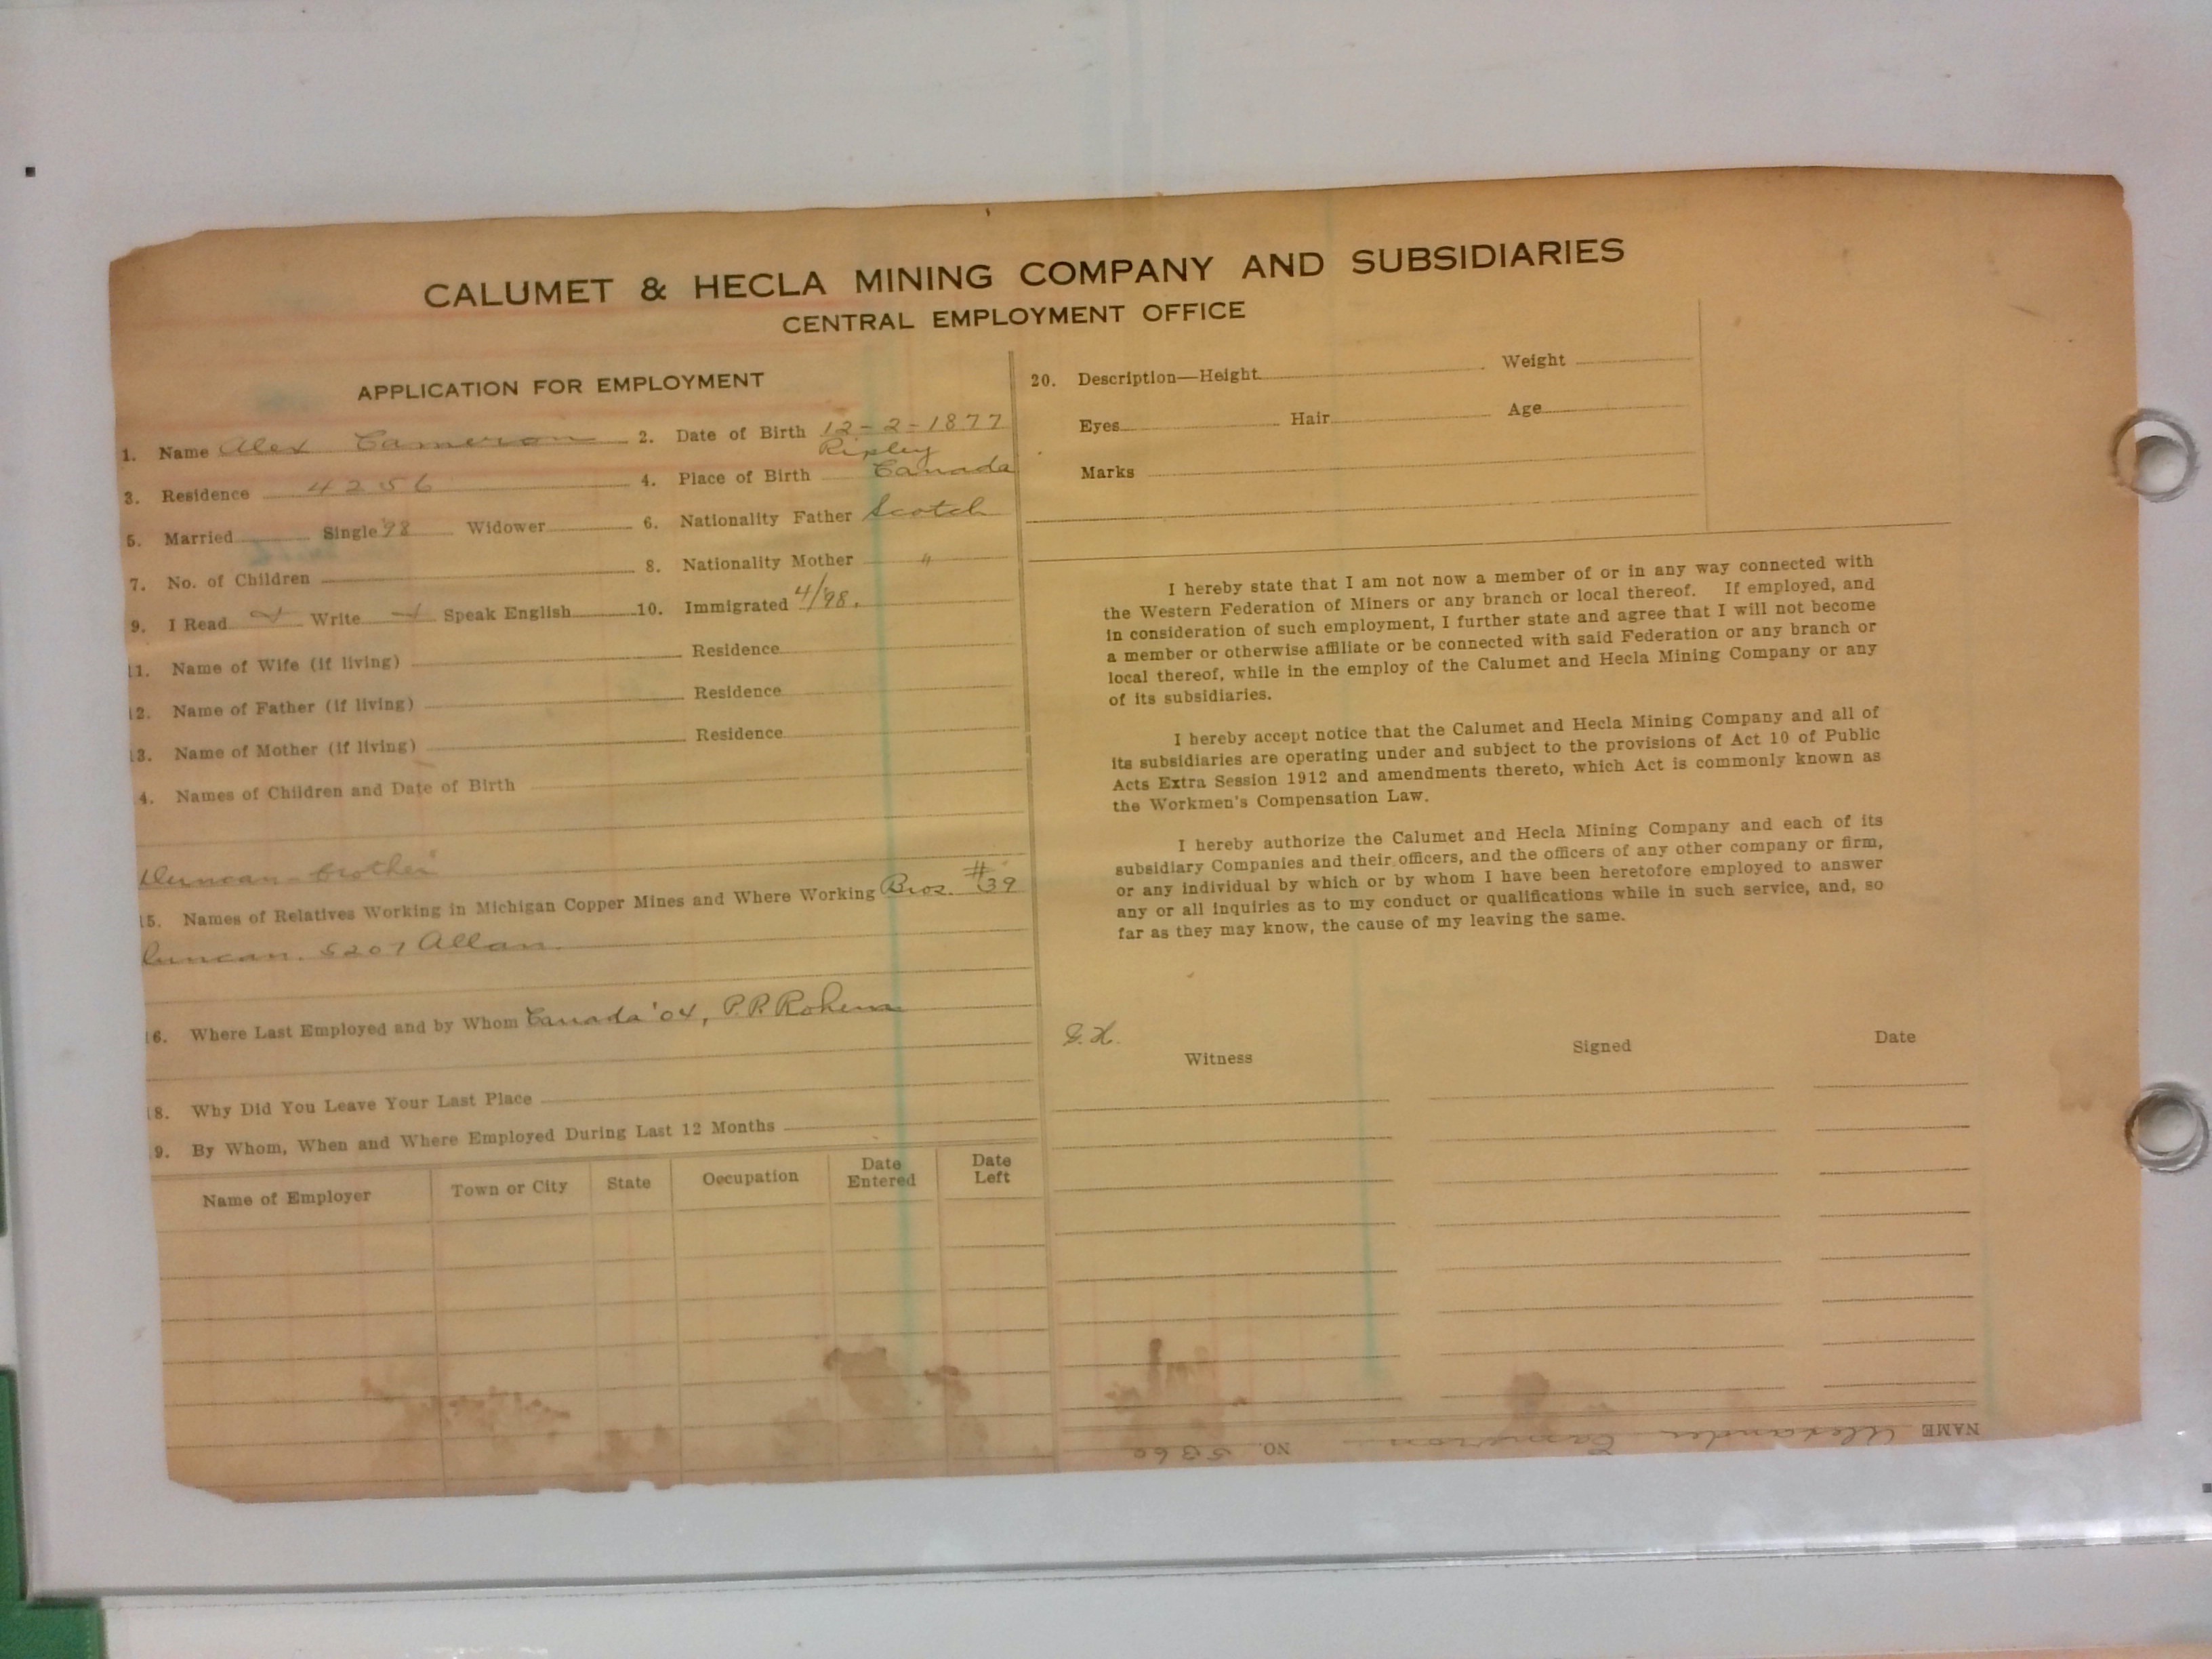 CALUMET & HECLA MINING COMPANY AND SUBSIDIARIES
CENTRAL EMPLOYMENT OFFICE
APPLICATION FOR EMPLOYMENT
1. Name Alex Cameron 2. Date of Birth 12-2-1877
Ripley
3. Residence 4256 4. Place of Birth Canada
5. Married Single '98 Widower 6. Nationality Father Scotch
7. No. of Children 8. Nationality Mother "
9. I Read Write Speak English 10. Immigrated 4/98.
11. Name of Wife (if living) Residence
12. Name of Father (if living) Residence
13. Name of Mother (if living) Residence
4. Names of Children and Date of Birth
Duncan - brother
15. Names of Relatives Working in Michigan Copper Mines and Where Working Bros. #39
Duncan. 5207 Allan.
16. Where Last Employed and by Whom Canada '04, P.R.
18. Why Did You Leave Your Last Place
9. By Whom, When and Where Employed During Last 12 Months
Name of Employer Town or City State Occupation Date Entered Date Left
20. Description—Height Weight
Eyes Hair Age
Marks
I hereby state that I am not now a member of or in any way connected with
the Western Federation of Miners or any branch or local thereof. If employed, and
in consideration of such employment, I further state and agree that I will not become
a member or otherwise affiliate or be connected with said Federation or any branch or
local thereof, while in the employ of the Calumet and Hecla Mining Company or any
of its subsidiaries.
I hereby accept notice that the Calumet and Hecla Mining Company and all of
its subsidiaries are operating under and subject to the provisions of Act 10 of Public
Acts Extra Session 1912 and amendments thereto, which Act is commonly known as
the Workmen's Compensation Law.
I hereby authorize the Calumet and Hecla Mining Company and each of its
subsidiary Companies and their officers, and the officers of any other company or firm,
or any individual by which or by whom I have been heretofore employed to answer
any or all inquiries as to my conduct or qualifications while in such service, and, so
far as they may know, the cause of my leaving the same.
Witness Signed Date
NAME Alexander Cameron NO. 5360